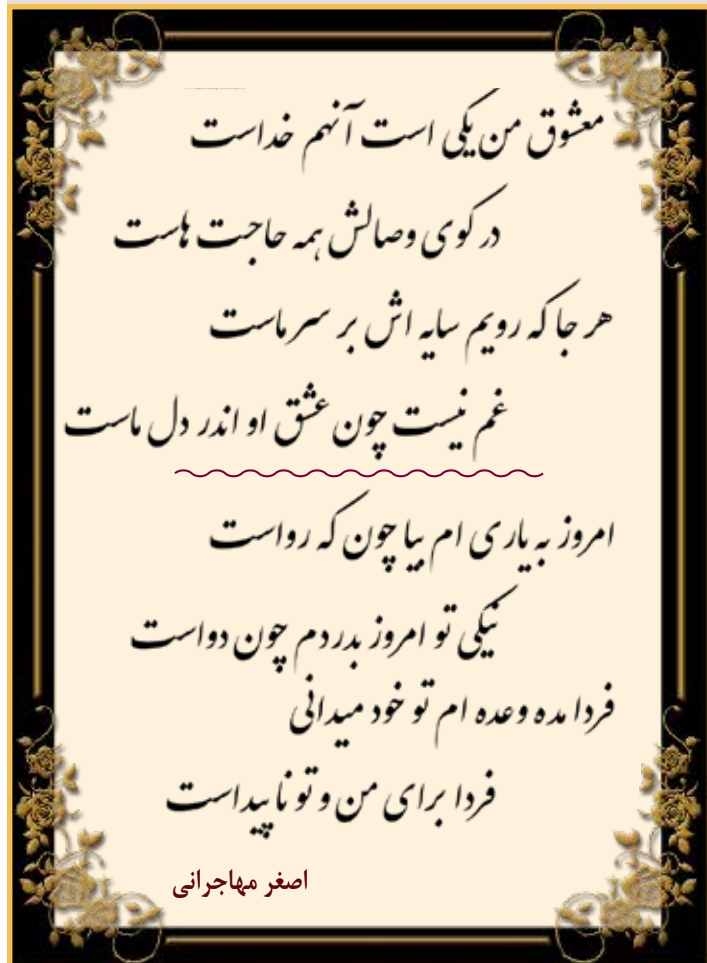 معشوق من یکی است آنهم خداست
در کوی وصالش همه حاجت هاست
هر جا که رویم سایه اش بر سر ماست
غم نیست چون عشق او اندر دل ماست
امروز به یاری ام بیا چون که رواست
نیکی تو امروز بدردم چون دواست
فردا مده وعده ام تو خود میدانی
فردا برای من و تو ناپیداست
اصغر مهاجرانی